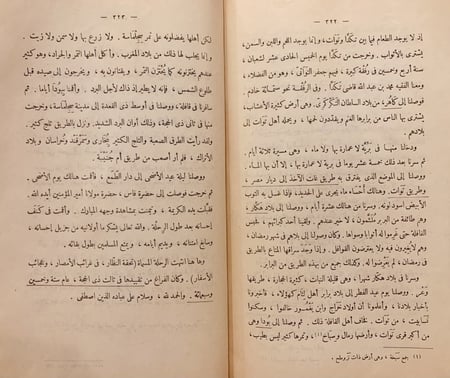 — ٣٢٢ —
إذ لا يوجد الطعام فيما بين تكدّا وتوات، وإنما يوجد اللحم واللبن والسمن،
يشترى بالأثواب. وخرجت من تكدّا يوم الخميس الحادى عشر لشعبان،
سنة أربع وخمسين فى رفقة كبيرة، فيهم جعفر التواتىّ، وهو من الفضلاء،
ومعنا الفقيه محمد بن عبد الله قاضى تكدّا. وفى الرفقة نحو ستمائة خادم.
فوصلنا إلى كاهر، من بلاد السلطان الكركرىّ. وهى أرض كثيرة الأعشاب،
يشترى بها الناس من برابرها الغنم ويقددون لحمها، ويحمله أهل توات إلى
بلادهم.
ودخلنا منها فى برّيّة لا عمارة بها ولا ماء، وهى مسيرة ثلاثة أيام.
ثم سرنا بعد ذلك خمسة عشر يوما فى برية لا عمارة بها، إلا أن بها الماء.
ووصلنا إلى الموضع الذى يفترق به طريق غات الآخذ إلى ديار مصر،
وطريق توات. وهنالك أحساء ماء يجرى على الحديد، فإذا غسل به الثوب
الأبيض اسود لونه. وسرنا من هنالك عشرة أيام، ووصلنا إلى بلاد هكّار،
وهم طائفة من البربر ملثمون، لا خير عندهم. ولقينا أحد كبرائهم، فحبس
القافلة حتى غرموا له أثوابا وسواها. وكان وصولنا إلى بلادهم فى شهر رمضان،
وهم لا يغيرون فيه ولا يعترضون القوافل. وإذا وجد سراقها المتاع بالطريق
فى رمضان، لم يعرضوا له. وكذلك جميع من بهذه الطريق من البرابر.
وسرنا فى بلاد هكار شهرا، وهى قليلة النبات، كثيرة الحجارة، طريقها
وعر. ووصلنا يوم عيد الفطر إلى بلاد برابر أهل لثام كهؤلاء، فأخبرونا
بأخبار بلادنا، وأعلمونا أن أولاد خراج وابن يغمور خالفوا، وسكنوا
تسابيت، من توات. فخاف أهل القافلة ذلك. ثم وصلنا إلى بودا وهى
من أكبر قرى توات، وأرضها رمال وسباخ (١)، وتمرها كثير ليس بطيب،
(١) جمع سبخة، وهى أرض ذات نز وملح.
— ٣٢٣ —
لكن أهلها يفضلونه على تمر سجلماسة. ولا زرع بها ولا سمن ولا زيت.
وإنما يجلب لها ذلك من بلاد المغرب. وأكل أهلها التمر والجراد، وهو كثير
عندهم يختزنونه كما يختزن التمر، ويقتاتون به، ويخرجون إلى صيده قبل
طلوع الشمس، فإنه لا يطير إذ ذاك لأجل البرد. وأقنا ببودا أياما. ثم
سافرنا فى قافلة، ووصلنا فى أوسط ذى القعدة إلى مدينة سجلماسة، وخرجت
منها فى ثانى ذى الحجة، وذلك أوان البرد الشديد. ونزل بالطريق ثلج كثير.
ولقد رأيت الطرق الصعبة والثلج الكثير ببخارى وسمرقند وخراسان وبلاد
الأتراك، فلم أر أصعب من طريق أم جنيبة.
ووصلنا ليلة عيد الأضحى إلى دار الطمع، فأقت هنالك يوم الأضحى.
ثم خرجت فوصلت إلى حضرة فاس، حضرة مولانا أمير المؤمنين أيده الله.
فقبلت يده الكريمة، وتيمنت بمشاهدة وجهه المبارك. وأقت فى كنف
إحسانه بعد طول الرحلة. والله تعالى يشكر ما أولانيه من جزيل إحسانه،
وسابغ امتنانه، ويديم أيامه، ويمتع المسلمين بطول بقائه.
وهنا انتهت الرحلة المسماة (تحفة النظار، فى غرائب الأمصار، وعجائب
الأسفار). وكان الفراغ من تقييدها فى ثالث ذى الحجة، عام ستة وخمسين
وسبعمائة. والحمد لله، وسلام على عباده الذين اصطفى.